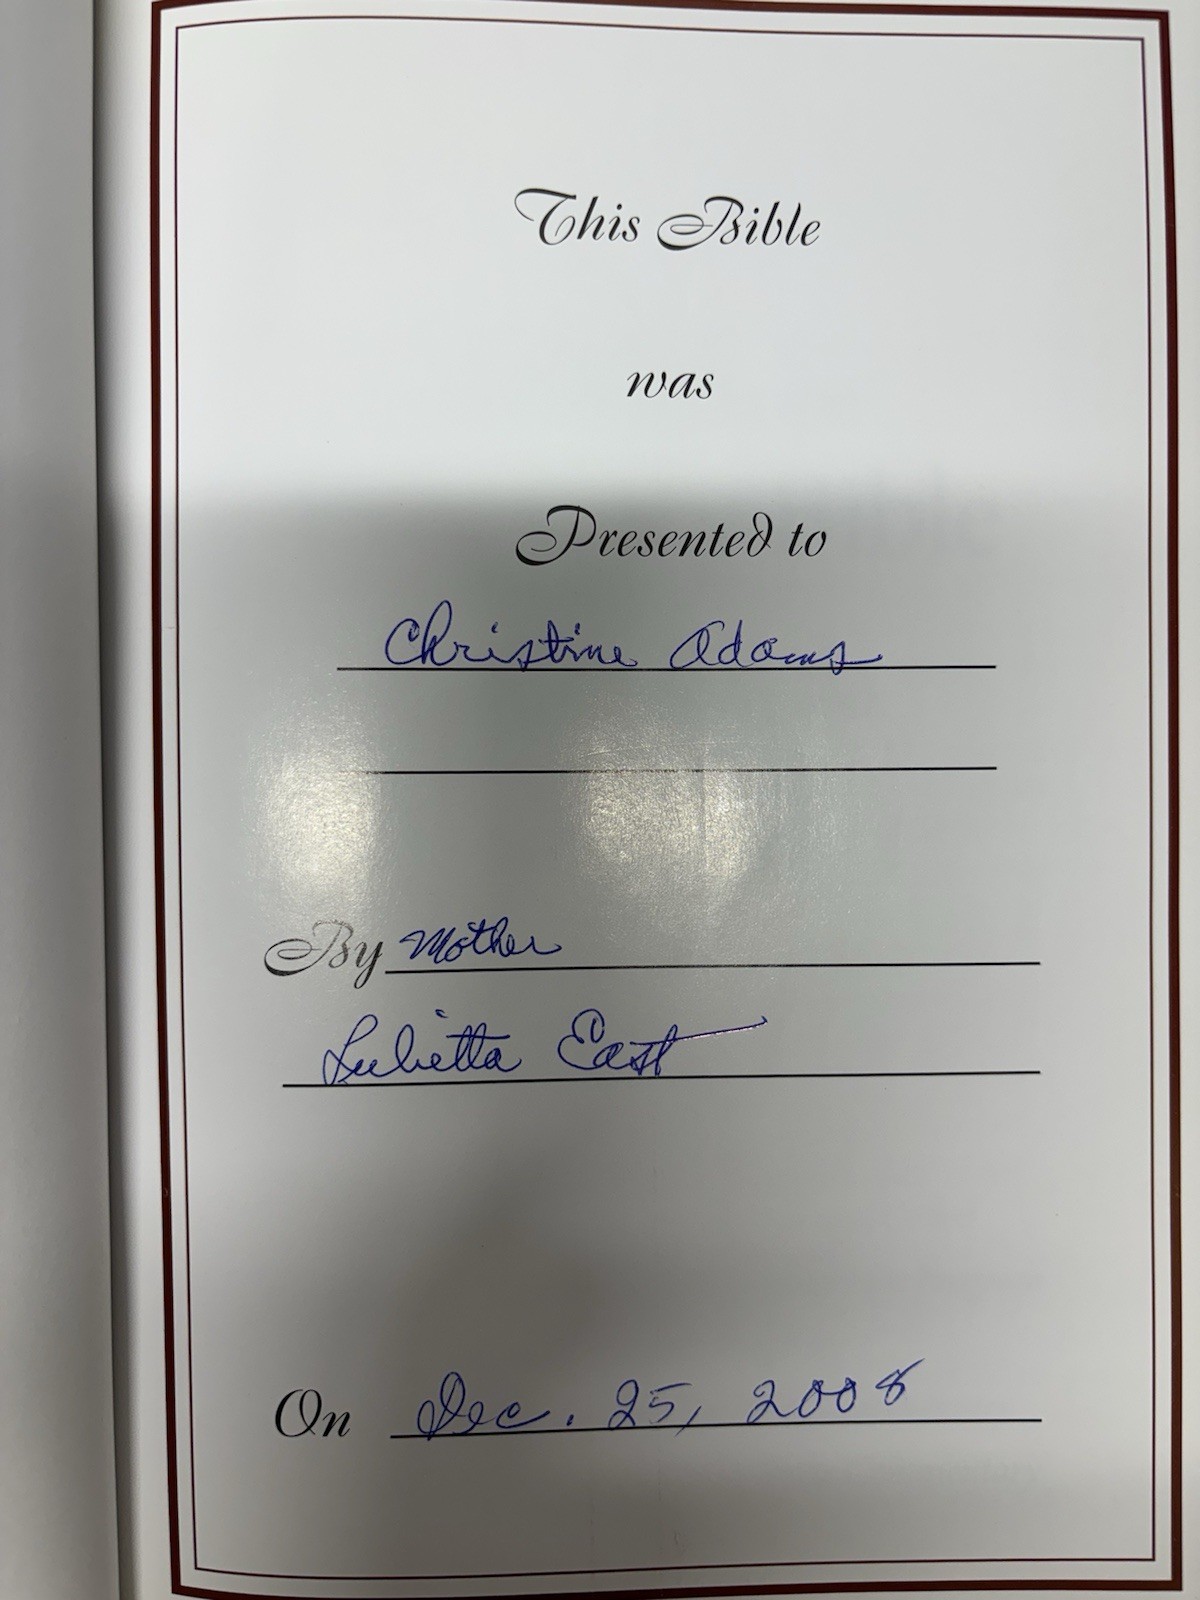 This Bible
was
Presented to
Christine Adams
By Mother
Lulietta East
On Dec. 25, 2008